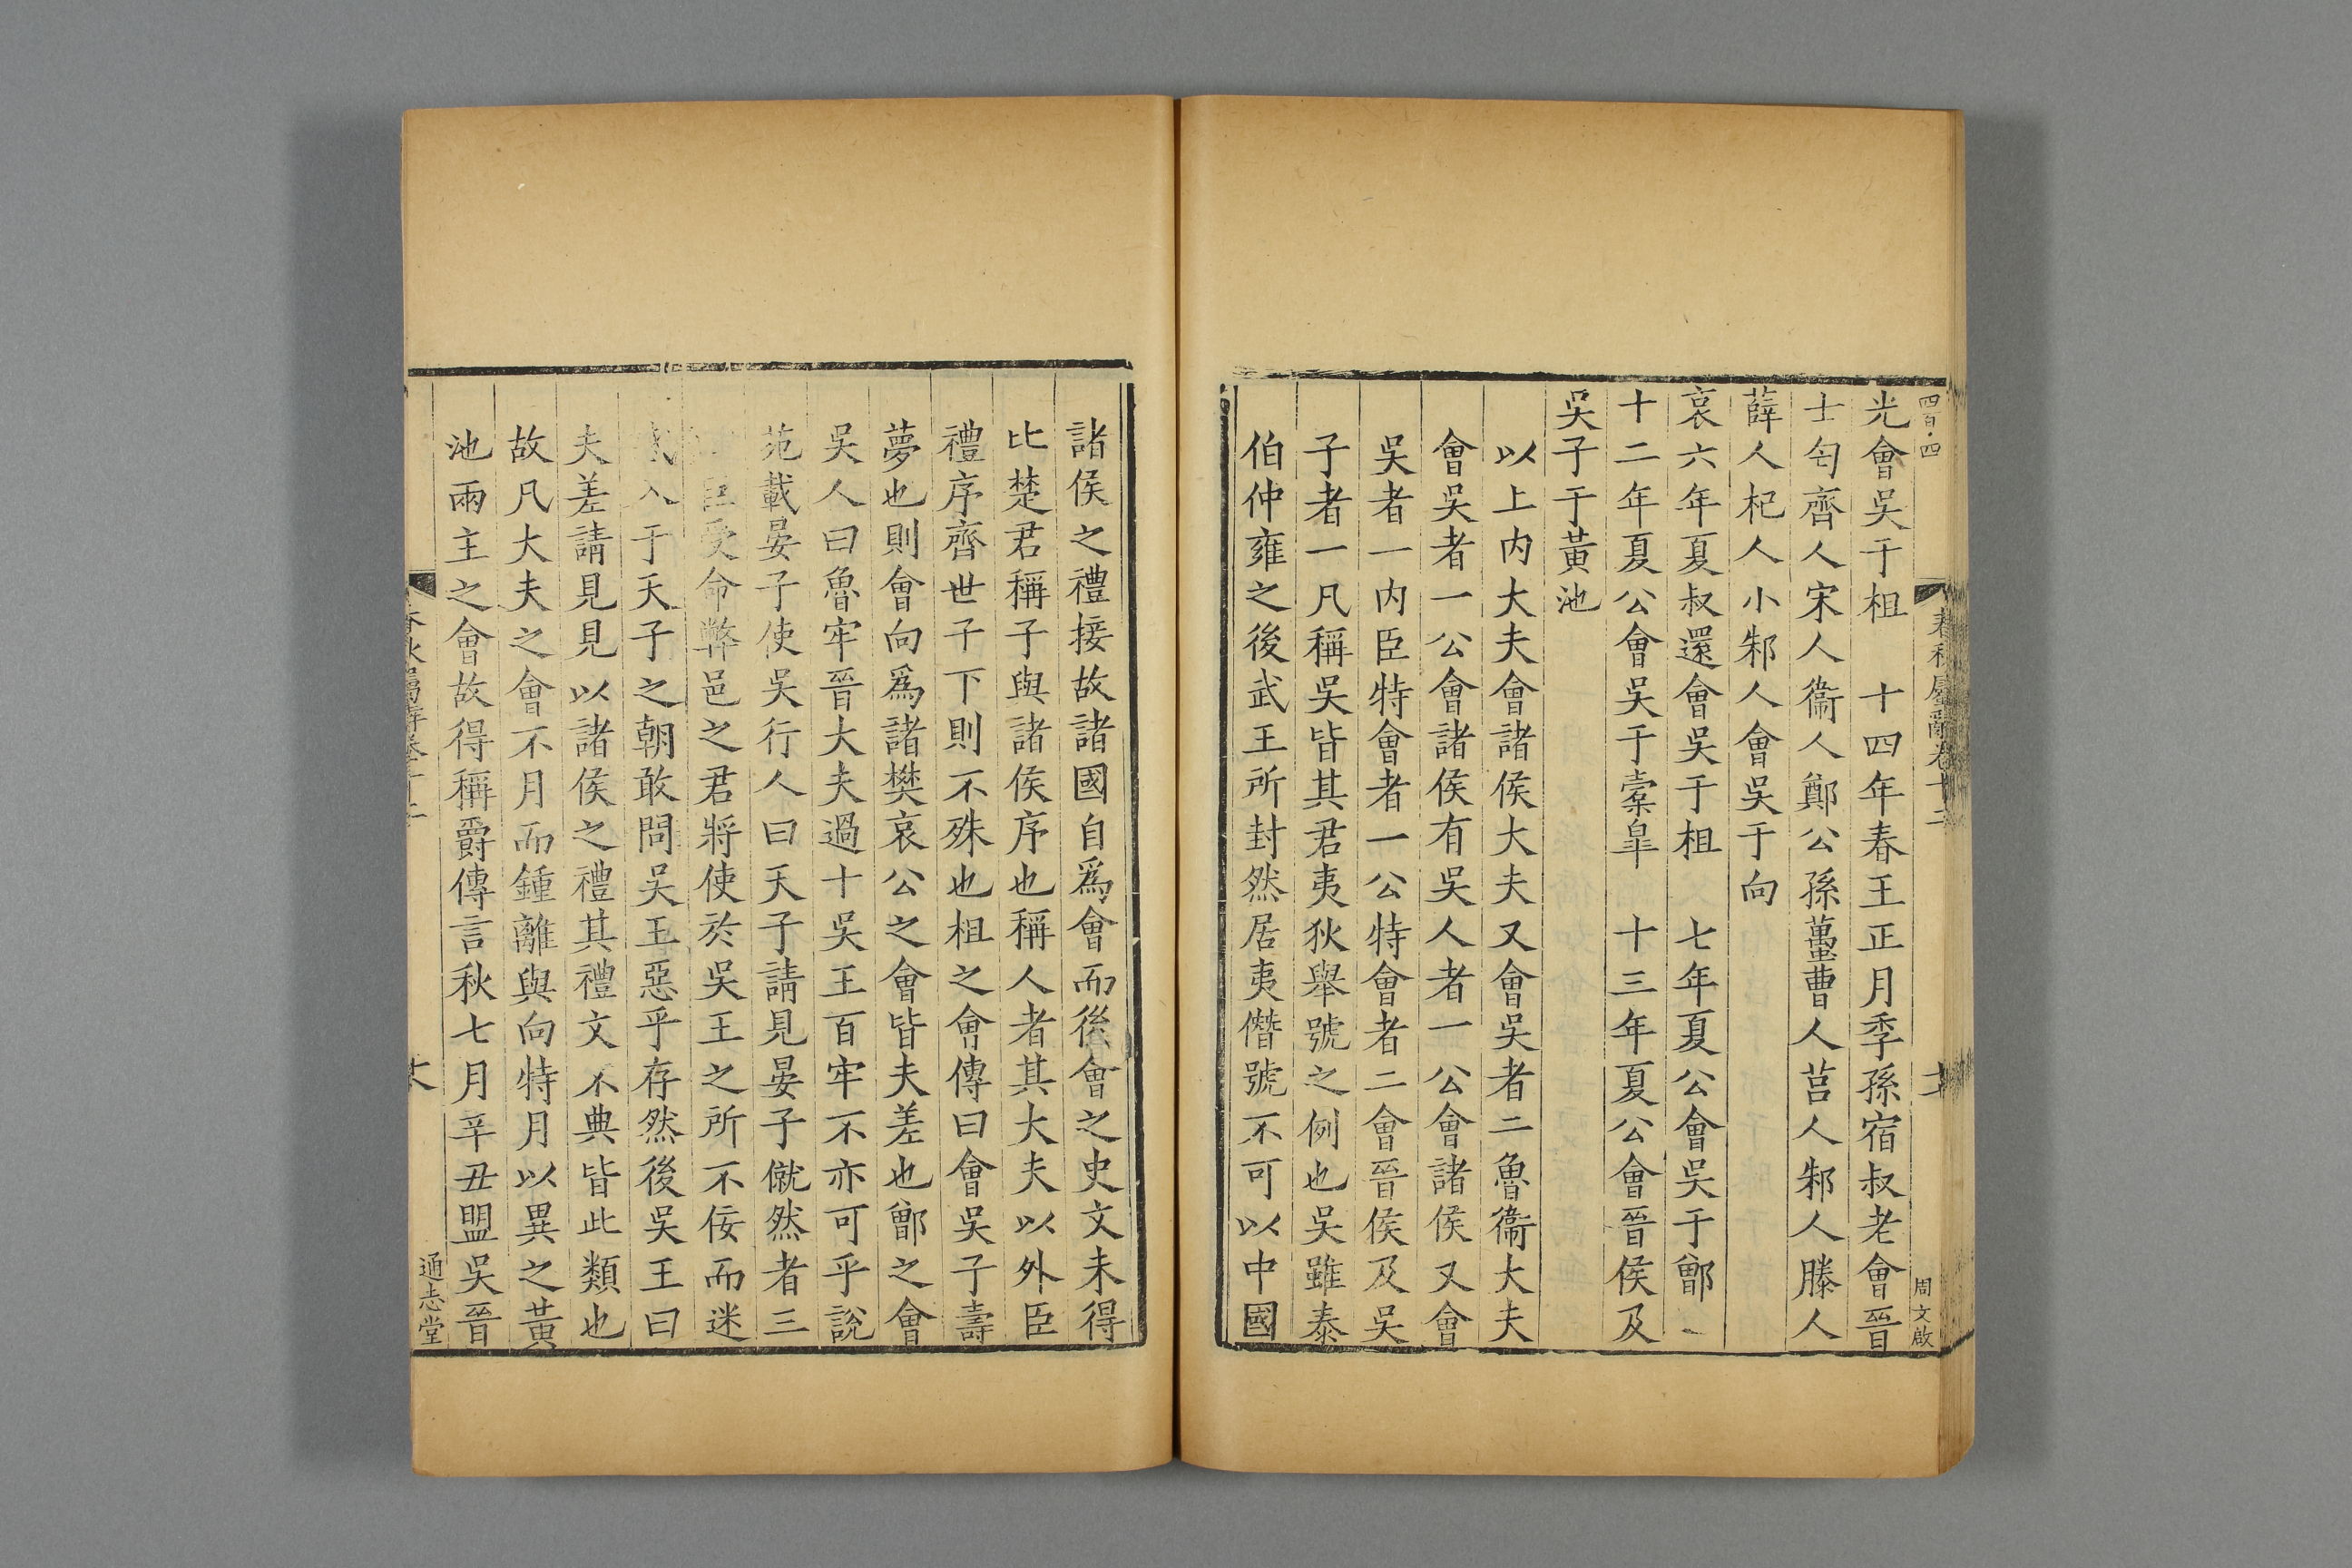 四百四
春秋屬辭卷十二
周文啟
光會吳于柤　十四年春王正月季孫宿叔老會晉
士匄齊人宋人衞人鄭公孫蠆曹人莒人邾人滕人
薛人杞人小邾人會吳于向
哀六年夏叔還會吳于柤　七年夏公會吳于鄫
十二年夏公會吳于橐皐　十三年夏公會晉侯及
吳子于黃池
以上内大夫會諸侯大夫又會吳者二魯衞大夫
會吳者一公會諸侯有吳人者一公會諸侯又會
吳者一内臣特會者一公特會者二會晉侯及吳
子者一凡稱吳皆其君夷狄舉號之例也吳雖泰
伯仲雍之後武王所封然居夷僭號不可以中國
諸侯之禮接故諸國自爲會而後會之史文未得
比楚君稱子與諸侯序也稱人者其大夫以外臣
禮序齊世子下則不殊也柤之會傳曰會吳子壽
夢也則會向爲諸樊哀公之會皆夫差也鄫之會
吳人曰魯牢晉大夫過十吳王百牢不亦可乎說
苑載晏子使吳行人曰天子請見晏子僦然者三
臣受命弊邑之君將使於吳王之所不佞而迷
入于天子之朝敢問吳王惡乎存然後吳王曰
夫差請見見以諸侯之禮其禮文不典皆此類也
故凡大夫之會不月而鍾離與向特月以異之黃
池兩主之會故得稱爵傳言秋七月辛丑盟吳晉
通志堂